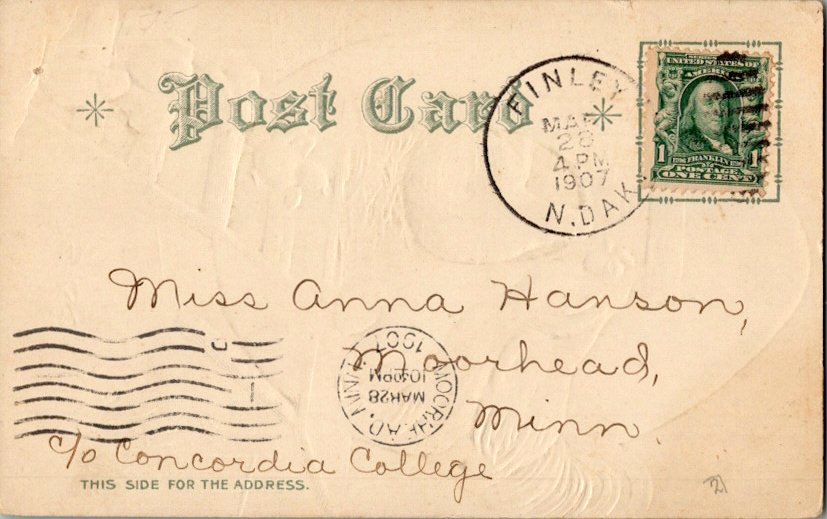 Post Card
FINLEY
MAR
26
4 PM
1907
N. DAK.
SERIES 1902
UNITED STATES OF
AMERICA
1 1
1706 FRANKLIN 1790
POSTAGE
ONE CENT
Miss Anna Hanson,
Moorhead,
Minn.
MOORHEAD, MINN.
MAR 28
10 30 PM
1907
c/o Concordia College
THIS SIDE FOR THE ADDRESS.
21